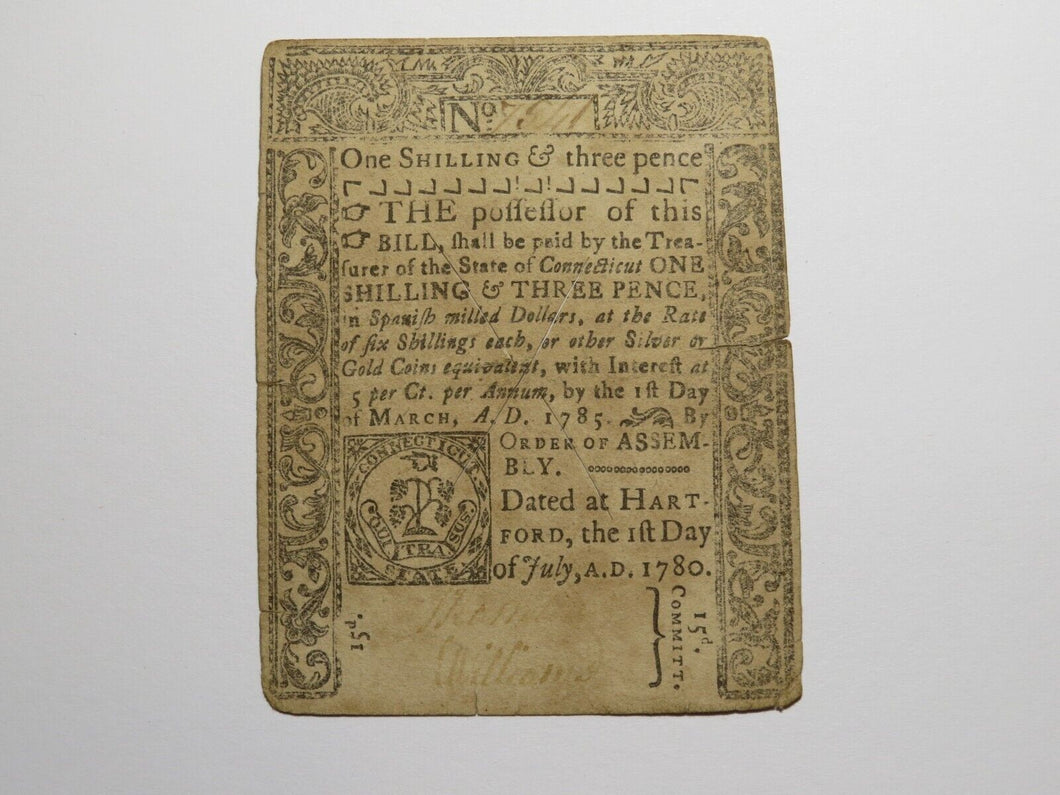 No. 7541
One SHILLING & three pence
THE poſſeſſor of this
BILL, ſhall be paid by the Trea-
ſurer of the State of Connecticut ONE
SHILLING & THREE PENCE,
in Spaniſh milled Dollars, at the Rate
of ſix Shillings each, or other Silver or
Gold Coins equivalent, with Intereſt at
5 per Ct. per Annum, by the 1ſt Day
of MARCH, A. D. 1785. By
ORDER OF ASSEM-
BLY.
Dated at HART-
FORD, the 1ſt Day
of July, A.D. 1780.
CONNECTICUT
QUI TRA. SUS.
STATE
15d.
Williams
15d.
COMMITT.